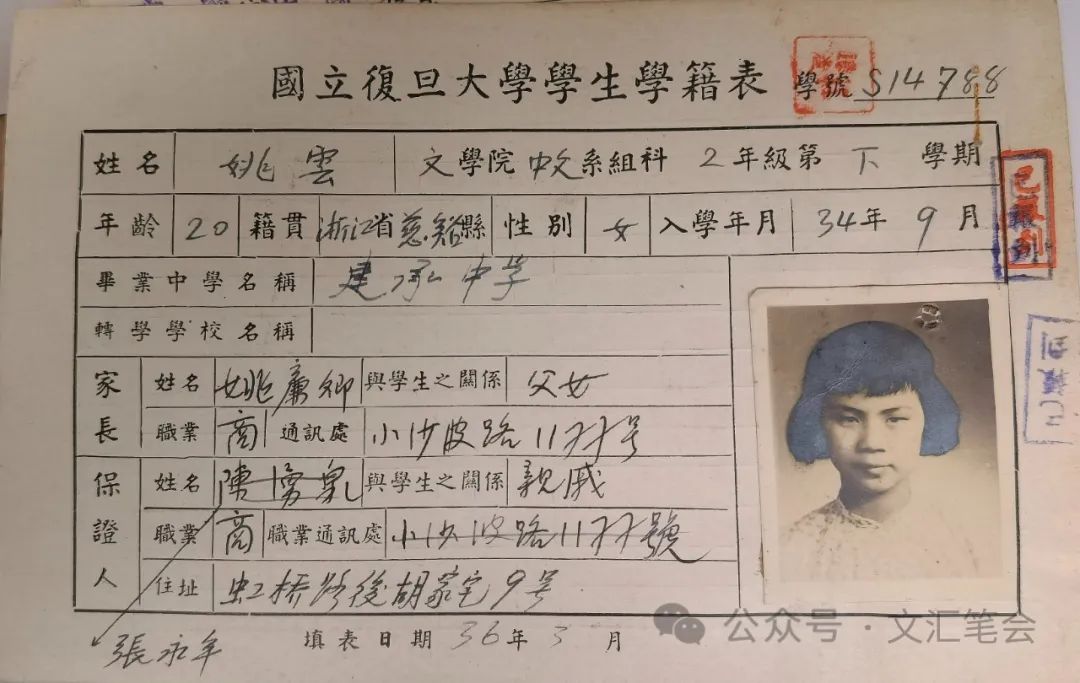 國立復旦大學學生學籍表 學號 S14788
姓名 姚雲 文學院 中文系組科 2年級第 下 學期
年齡 20 籍貫 浙江省慈谿縣 性別 女 入學年月 34年 9月
畢業中學名稱 建承中学
轉學學校名稱
家長 姓名 姚廉卿 與學生之關係 父女
職業 商 通訊處 小沙渡路11 号
保證人 姓名 陳 與學生之關係 親戚
職業 商 職業通訊處 小沙渡路11 號
住址 虹桥路後胡家宅9号
張永年 填表日期 36年 3月
已報到
已報到
公众号·文汇笔会